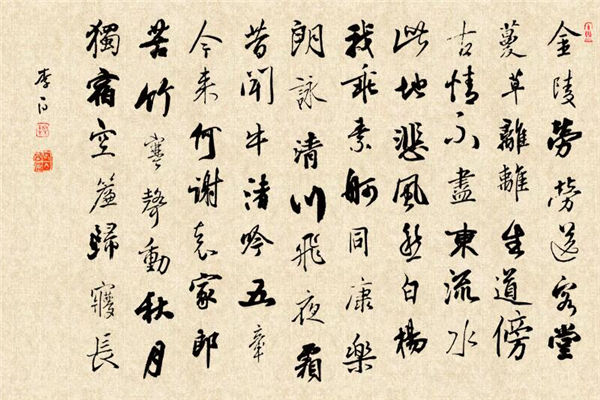 金陵勞勞送客堂
蔓草離離生道傍
古情不盡東流水
此地悲風愁白楊
我乘素舸同康樂
朗詠清川飛夜霜
昔聞牛渚吟五章
今来何謝袁家郎
苦竹寒聲動秋月
獨宿空簾歸夢長
李白